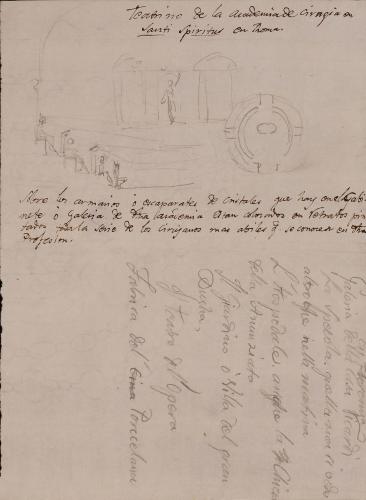 Teatrino de la Academia de Cirugia en
Santi Spiritus en Rhoma.
Profesor
C
Sobre los armarios ó escaparates de cristales que hay en el Gabi
nete ó Galeria de Dha Academia estan colocados en retratos pin
tados toda la serie de los Cirujanos mas abiles q se conocen en Dha
Profesion.
Galeria della Casa Ricardi
La Specola, quella
anche nella medesima
L'Hospedale, anche la Chiesa
della Annunziata
Il Giardino o Villa del gran
Ducha,
Il teatro del Opera
Fabrica del Porcelana